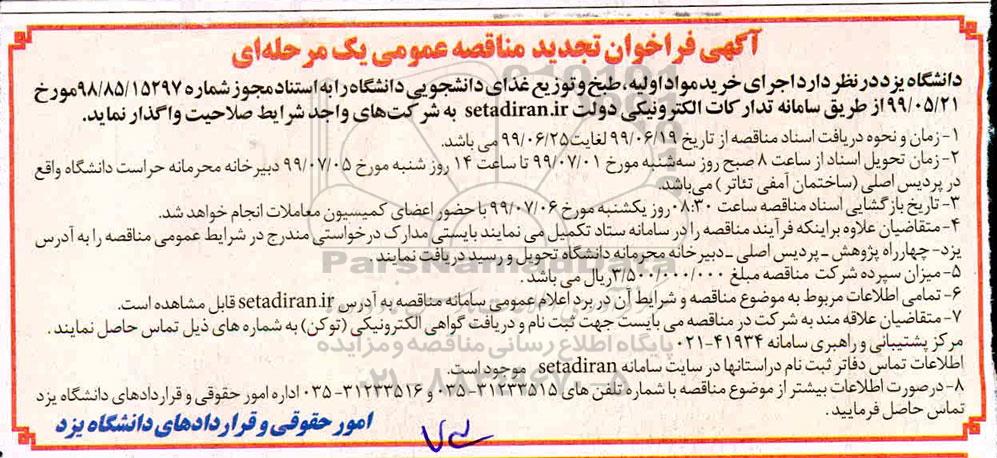 آگهی فراخوان تجدید مناقصه عمومی یک مرحله‌ای
دانشگاه یزد در نظر دارد اجرای خرید مواد اولیه، طبخ و توزیع غذای دانشجویی دانشگاه را به استناد مجوز شماره ۹۸/۸۵/۱۵۲۹۷ مورخ
۹۹/۰۵/۲۱ از طریق سامانه تدارکات الکترونیکی دولت setadiran.ir به شرکت‌های واجد شرایط صلاحیت واگذار نماید.
۱- زمان و نحوه دریافت اسناد مناقصه از تاریخ ۹۹/۰۶/۱۹ لغایت ۹۹/۰۶/۲۵ می باشد.
۲- زمان تحویل اسناد از ساعت ۸ صبح روز سه‌شنبه مورخ ۹۹/۰۷/۰۱ تا ساعت ۱۴ روز شنبه مورخ ۹۹/۰۷/۰۵ دبیرخانه محرمانه حراست دانشگاه واقع
در پردیس اصلی (ساختمان آمفی تئاتر) می‌باشد.
۳- تاریخ بازگشایی اسناد مناقصه ساعت ۰۸:۳۰ روز یکشنبه مورخ ۹۹/۰۷/۰۶ با حضور اعضای کمیسیون معاملات انجام خواهد شد.
۴- متقاضیان علاوه بر اینکه فرآیند مناقصه را در سامانه ستاد تکمیل می نمایند بایستی مدارک درخواستی مندرج در شرایط عمومی مناقصه را به آدرس
یزد- چهارراه پژوهش ـ پردیس اصلی ـ دبیرخانه محرمانه دانشگاه تحویل و رسید دریافت نمایند.
۵- میزان سپرده شرکت مناقصه مبلغ ۳/۵۰۰/۰۰۰/۰۰۰ ریال می باشد.
۶- تمامی اطلاعات مربوط به موضوع مناقصه و شرایط آن در برد اعلام عمومی سامانه مناقصه به آدرس setadiran.ir قابل مشاهده است.
۷- متقاضیان علاقه مند به شرکت در مناقصه می بایست جهت ثبت نام و دریافت گواهی الکترونیکی (توکن) به شماره های ذیل تماس حاصل نمایند.
مرکز پشتیبانی و راهبری سامانه ۴۱۹۳۴-۰۲۱
اطلاعات تماس دفاتر ثبت نام دراستانها در سایت سامانه setadiran موجود است.
۸- درصورت اطلاعات بیشتر از موضوع مناقصه با شماره تلفن های ۳۱۲۳۳۵۱۵-۰۳۵ و ۳۱۲۳۳۵۱۶-۰۳۵ اداره امور حقوقی و قراردادهای دانشگاه یزد
تماس حاصل فرمایید.
امور حقوقی و قراردادهای دانشگاه یزد
ParsNamadData
پایگاه اطلاع رسانی مناقصه و مزایده